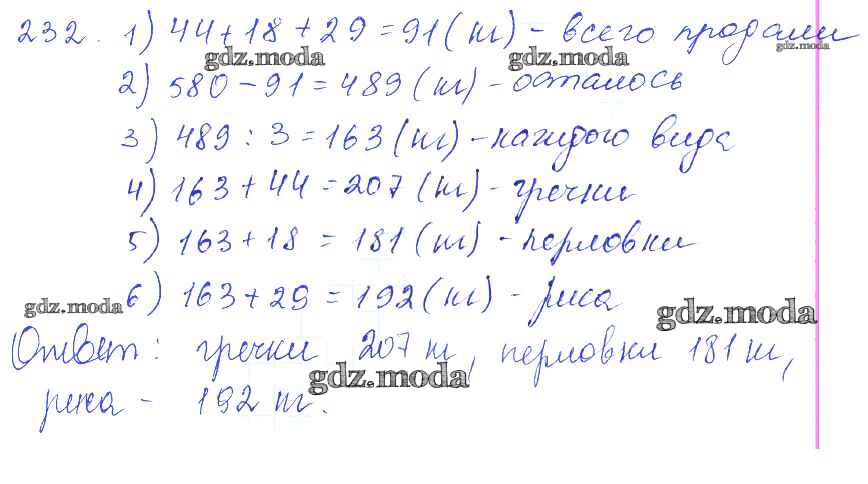 232. 1) 44+18+29=91 (кг) - всего продали
gdz.moda gdz.moda gdz.moda
2) 580-91=489 (кг) - осталось
3) 489:3=163 (кг) - каждого вида
4) 163+44=207 (кг) - гречки
5) 163+18=181 (кг) - перловки
gdz.moda 6) 163+29=192 (кг) - риса
gdz.moda
Ответ: гречки 207 кг, перловки 181 кг,
gdz.moda
риса - 192 кг.